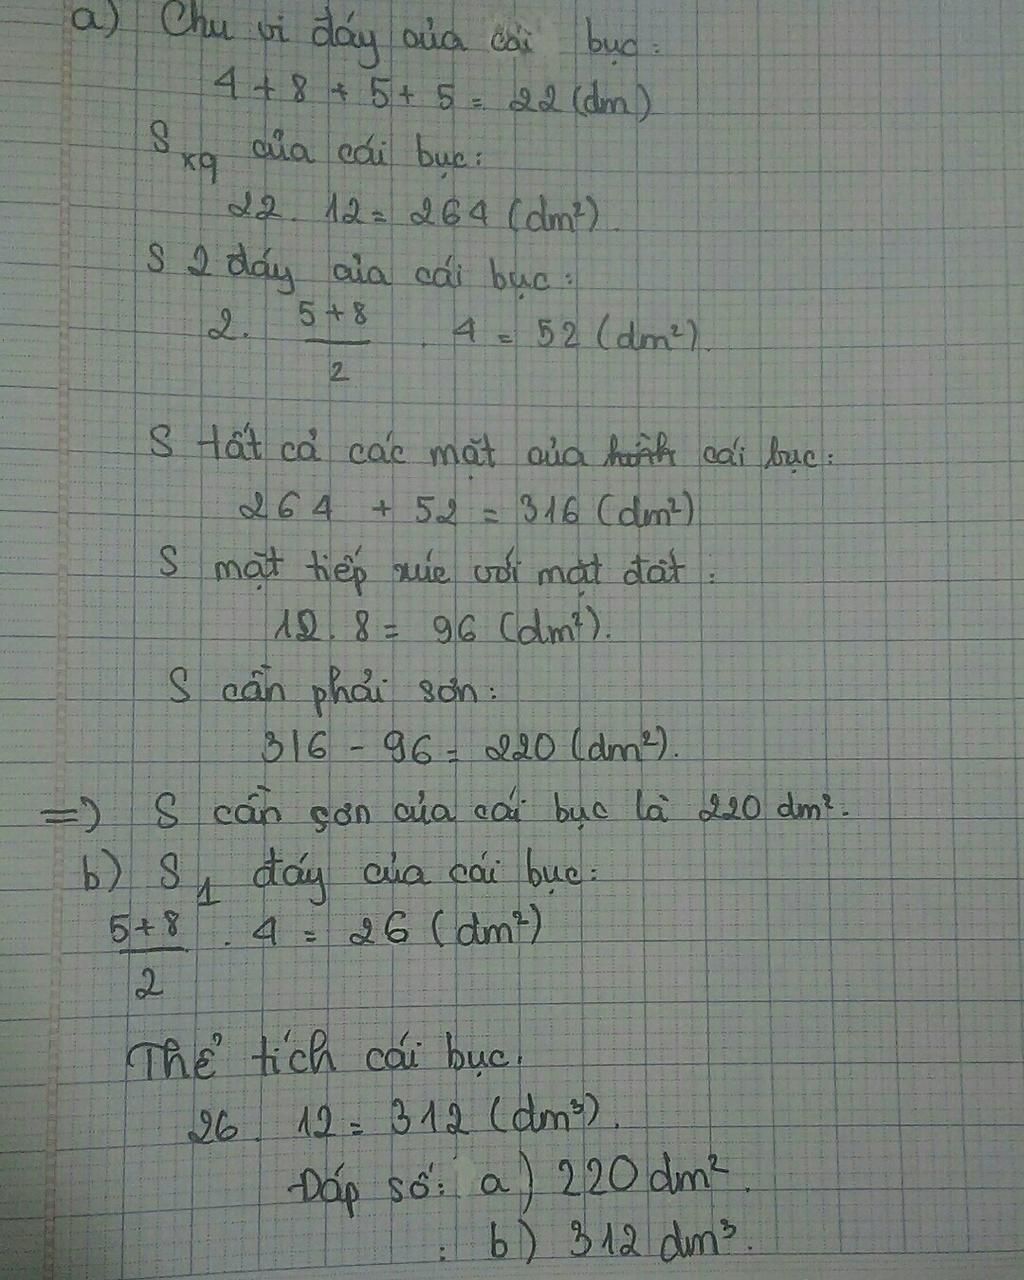 a) Chu vi đáy của cái bục:
4 + 8 + 5 + 5 = 22 (dm)
Sxq của cái bục:
22 . 12 = 264 (dm²).
S 2 đáy của cái bục:
2. (5+8)/2 . 4 = 52 (dm²).
S tất cả các mặt của cái bục:
264 + 52 = 316 (dm²)
S mặt tiếp xúc với mặt đất:
12 . 8 = 96 (dm²).
S cần phải sơn:
316 - 96 = 220 (dm²).
=> S cần sơn của cái bục là 220 dm².
b) S1 đáy của cái bục:
(5+8)/2 . 4 = 26 (dm²)
Thể tích cái bục.
26 . 12 = 312 (dm³).
Đáp số: a) 220 dm².
: b) 312 dm³.